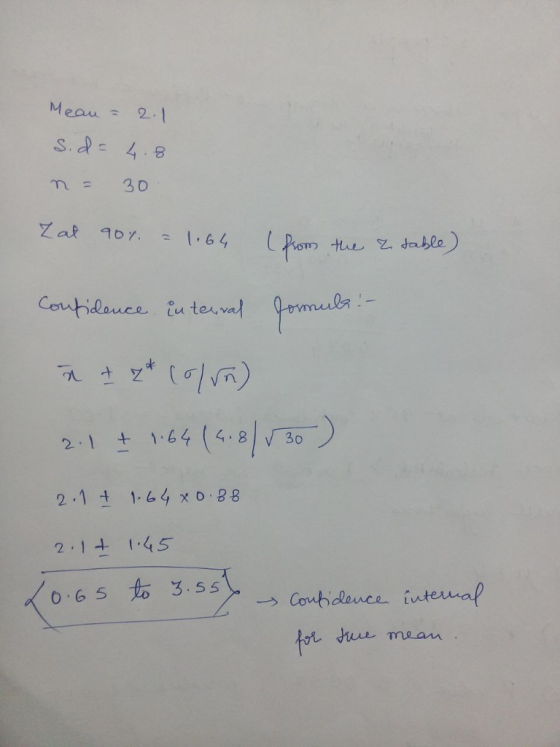 Mean = 2.1
S.d = 4.8
n = 30
Z at 90% = 1.64 (from the z table)
Confidence interval formula:-
x̄ ± z* (σ/√n)
2.1 ± 1.64 (4.8/√30)
2.1 ± 1.64 × 0.88
2.1 ± 1.45
0.65 to 3.55 → Confidence interval
for true mean.